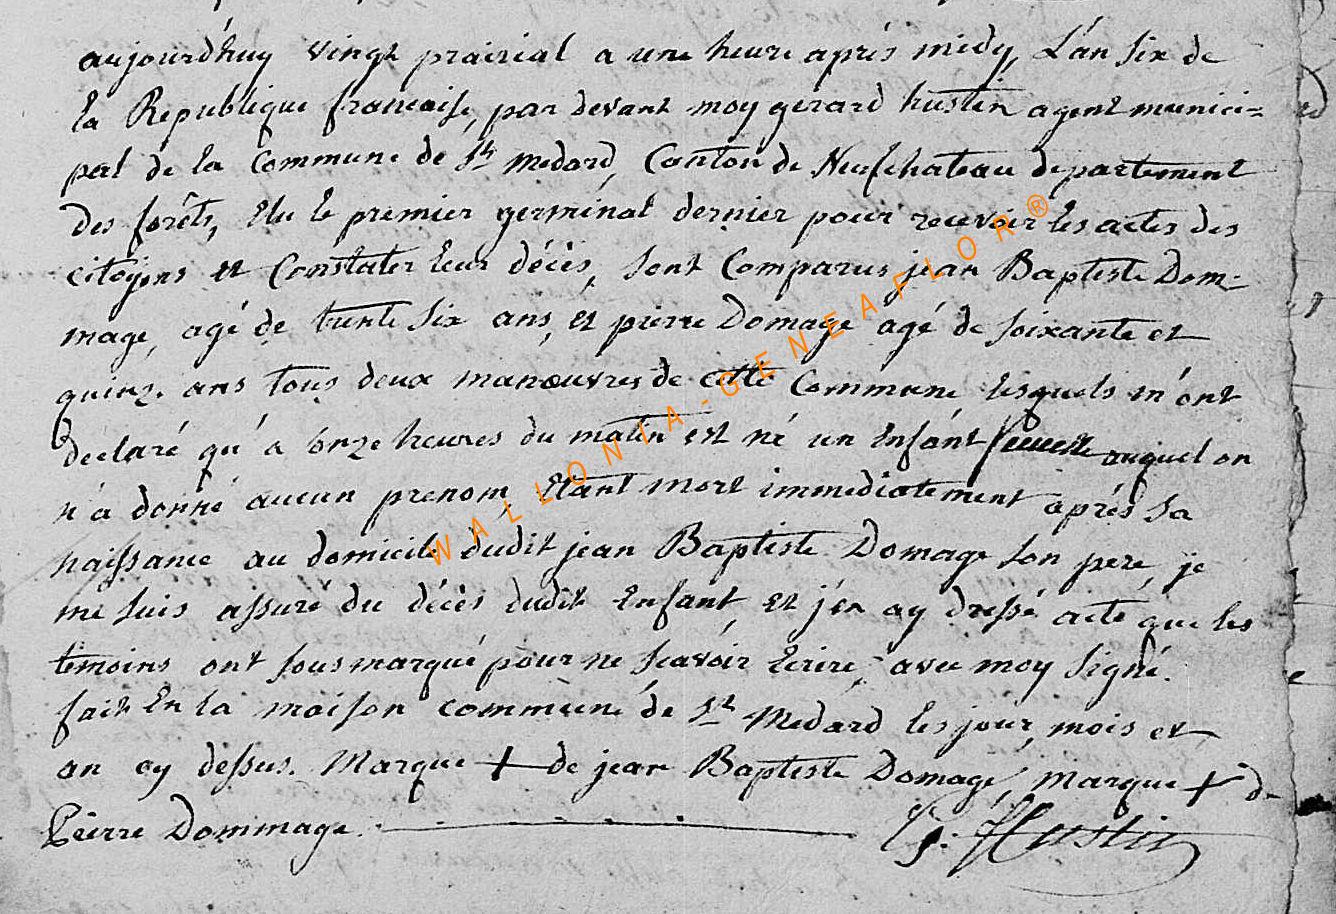 aujourd'huy vingt prairial a une heure après midy, L'an six de
la Republique francaise, par devant moy gerard hustin agent munici=
pal de la Commune de St medard, Canton de Neufchateau departement
des forêts, Elu le premier germinal dernier pour recevoir les actes des
citoyens et Constater leur décès, sont Comparus jean Baptiste Dom-
mage, agé de trente six ans, et pierre Domage agé de soixante et
quinze ans tous deux manœuvres de cette Commune lesquels m'ont
declaré qu'a onze heures du matin est né un Enfant auquel on
n'a donné aucun prenom, Etant mort immediatement après sa
naissance au domicile dudit jean Baptiste Domage son pere, je
me suis assuré du décès dudit Enfant, et j'en ay dressé acte que les
temoins ont sousmarqué pour ne scavoir Ecrire, avec moy signé.
fait En la maison commune de St Medard les jour, mois et
an cy dessus. Marque + de jean Baptiste Domage, marque + de
Pierre Dommage. G. Hustin
WALLONIA-GENEAFLOR®